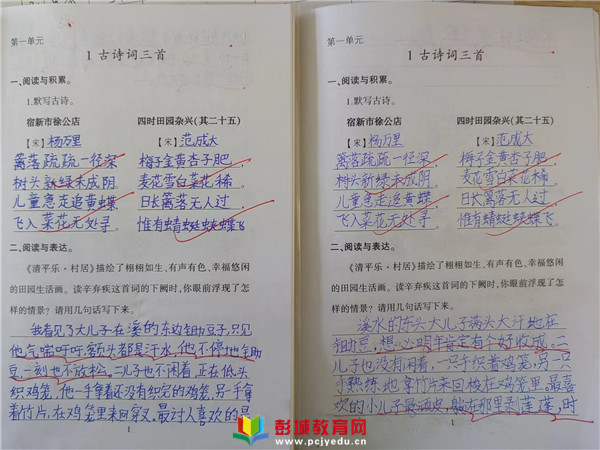 第一单元
1 古诗词三首
一、阅读与积累。
1.默写古诗。
宿新市徐公店
四时田园杂兴(其二十五)
【宋】杨万里
【宋】范成大
篱落疏疏一径深
梅子金黄杏子肥
树头新绿未成阴
麦花雪白菜花稀
儿童急走追黄蝶
日长篱落无人过
飞入菜花无处寻
惟有蜻蜓蛱蝶飞
二、阅读与表达。
《清平乐·村居》描绘了栩栩如生、有声有色、幸福悠闲
的田园生活画。读辛弃疾这首词的下阕时,你眼前浮现了怎
样的情景?请用几句话写下来。
我看见了大儿子在溪的东边锄豆子,只见
他气喘吁吁,额头都是汗水,他不停地锄
豆,一刻也不放松。二儿子也不闲着,正在低头
织鸡笼,他一手拿着还没有织完的鸡笼,另一手拿
着竹片,在鸡笼里来回穿叉,最讨人喜欢的是
1
第一单元
1 古诗词三首
一、阅读与积累。
1.默写古诗。
宿新市徐公店
四时田园杂兴(其二十五)
【宋】杨万里
【宋】范成大
篱落疏疏一径深
梅子金黄杏子肥
树头新绿未成阴
麦花雪白菜花稀
儿童急走追黄蝶
日长篱落无人过
飞入菜花无处寻
惟有蜻蜓蛱蝶飞
二、阅读与表达。
《清平乐·村居》描绘了栩栩如生、有声有色、幸福悠闲
的田园生活画。读辛弃疾这首词的下阕时,你眼前浮现了怎
样的情景?请用几句话写下来。
溪水的东头大儿子满头大汗地在
锄豆,想必明年肯定有个好收成。二
儿子也没有闲着,一只手织着鸡笼,另一只
手熟练地拿竹片来回梭在鸡笼里。最喜
欢的小儿子最顽皮,躺在那里剥莲蓬,时
1
彭城教育网
www.pcjyedu.cn